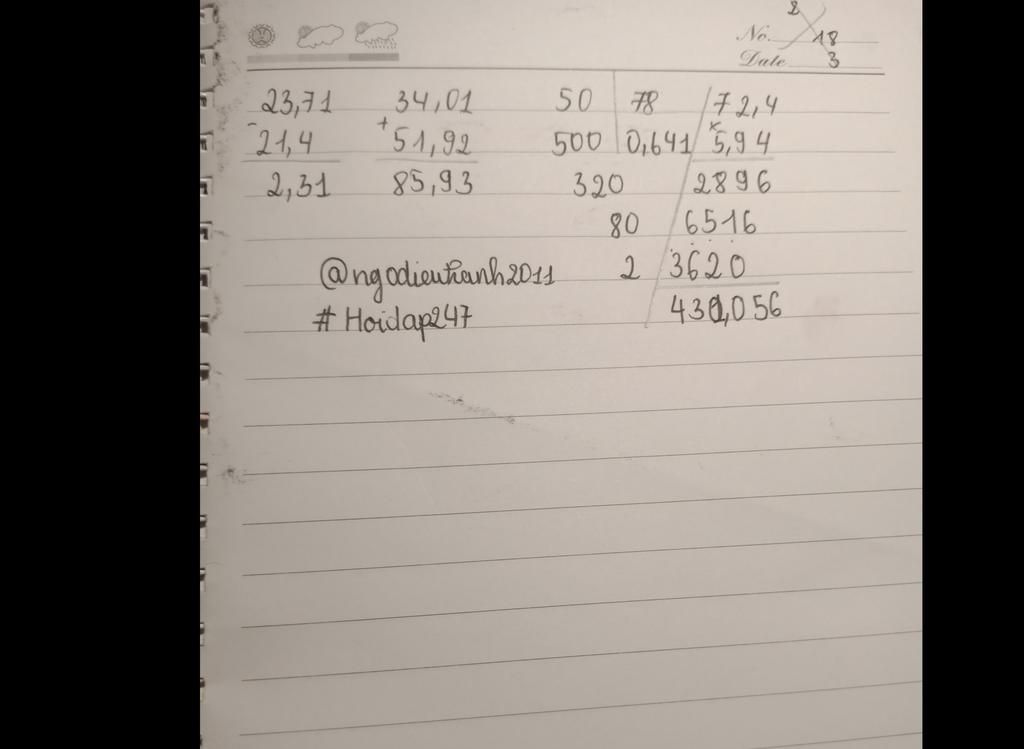 2
No. 18
Date 3
23,71 34,01 50 78 72,4
- 21,4 + 51,92 500 0,641 x 5,94
2,31 85,93 320 2896
80 6516
@ngodieuhanh2011 2 3620
# Hoidap247 430,056